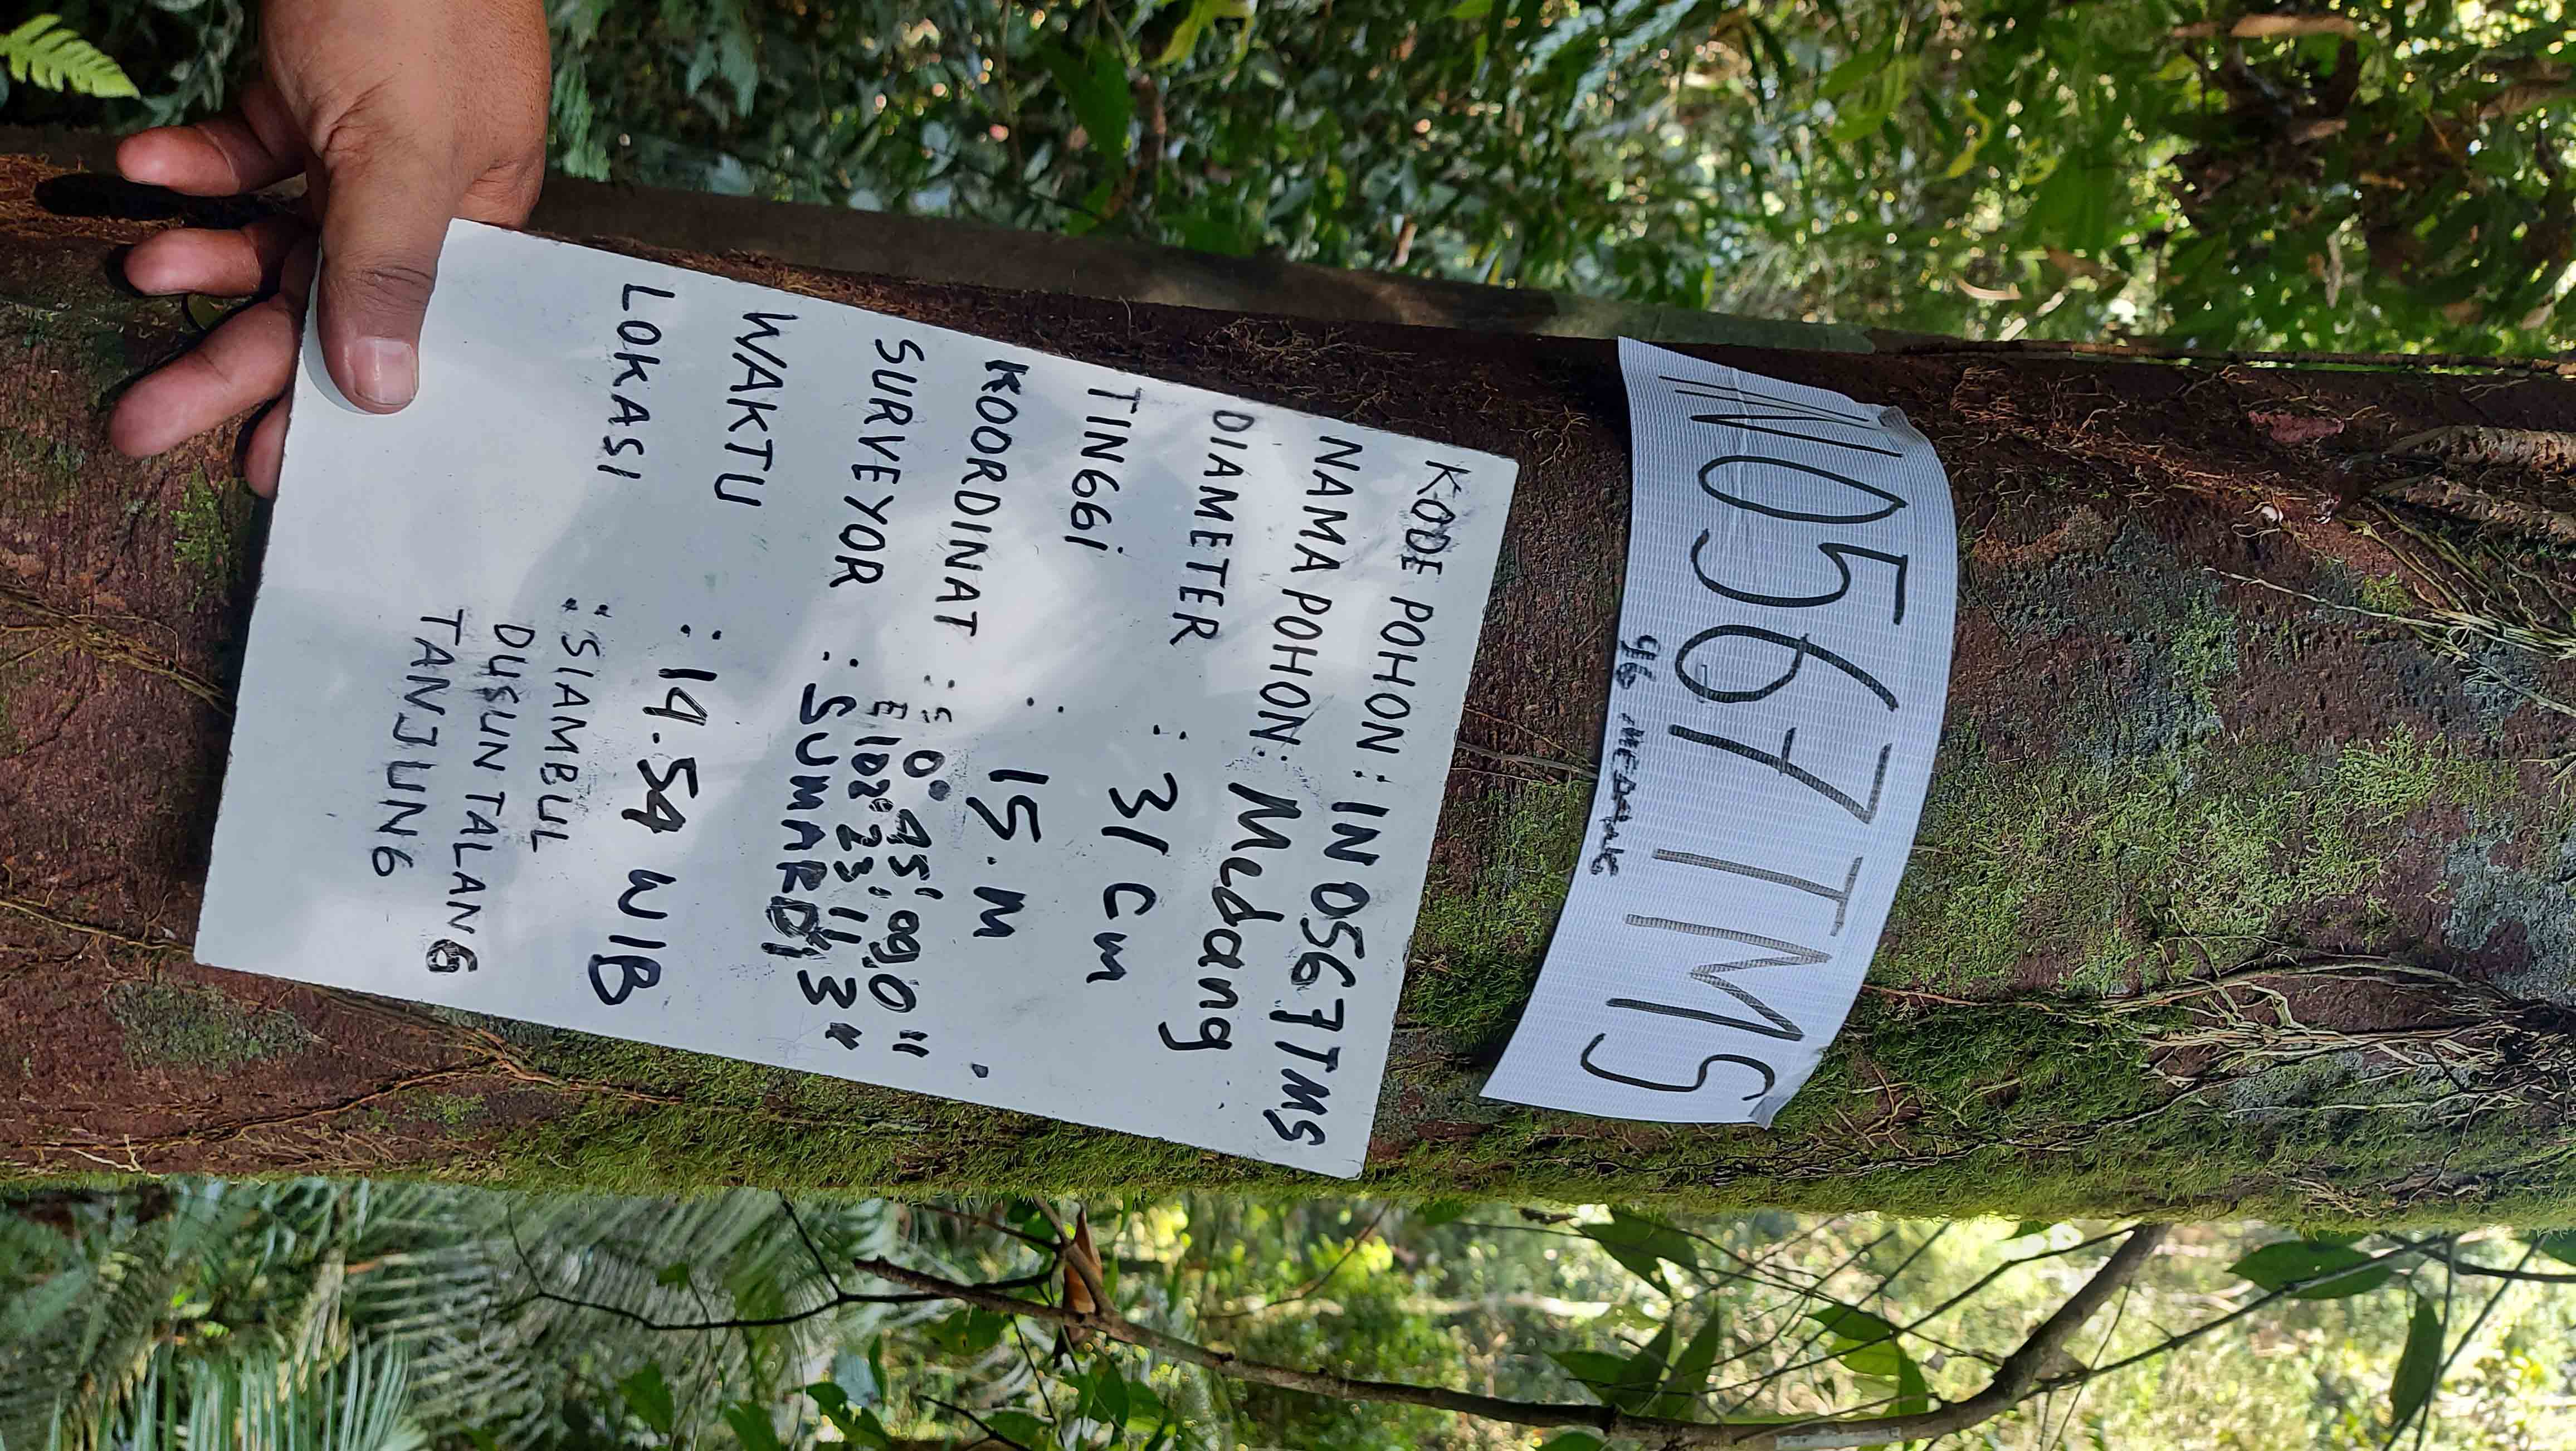 IN0567TMS
KODE POHON : IN 0567TMS
NAMA POHON : Medang
DIAMETER : 31 Cm
TINGGI : 15. M
KOORDINAT : S 0° 45' 09,0"
E 102° 23' 11,3"
SURVEYOR : SUMARDI
WAKTU : 14.54 WIB
LOKASI : SIAMBUL
DUSUN TALANG
TANJUNG